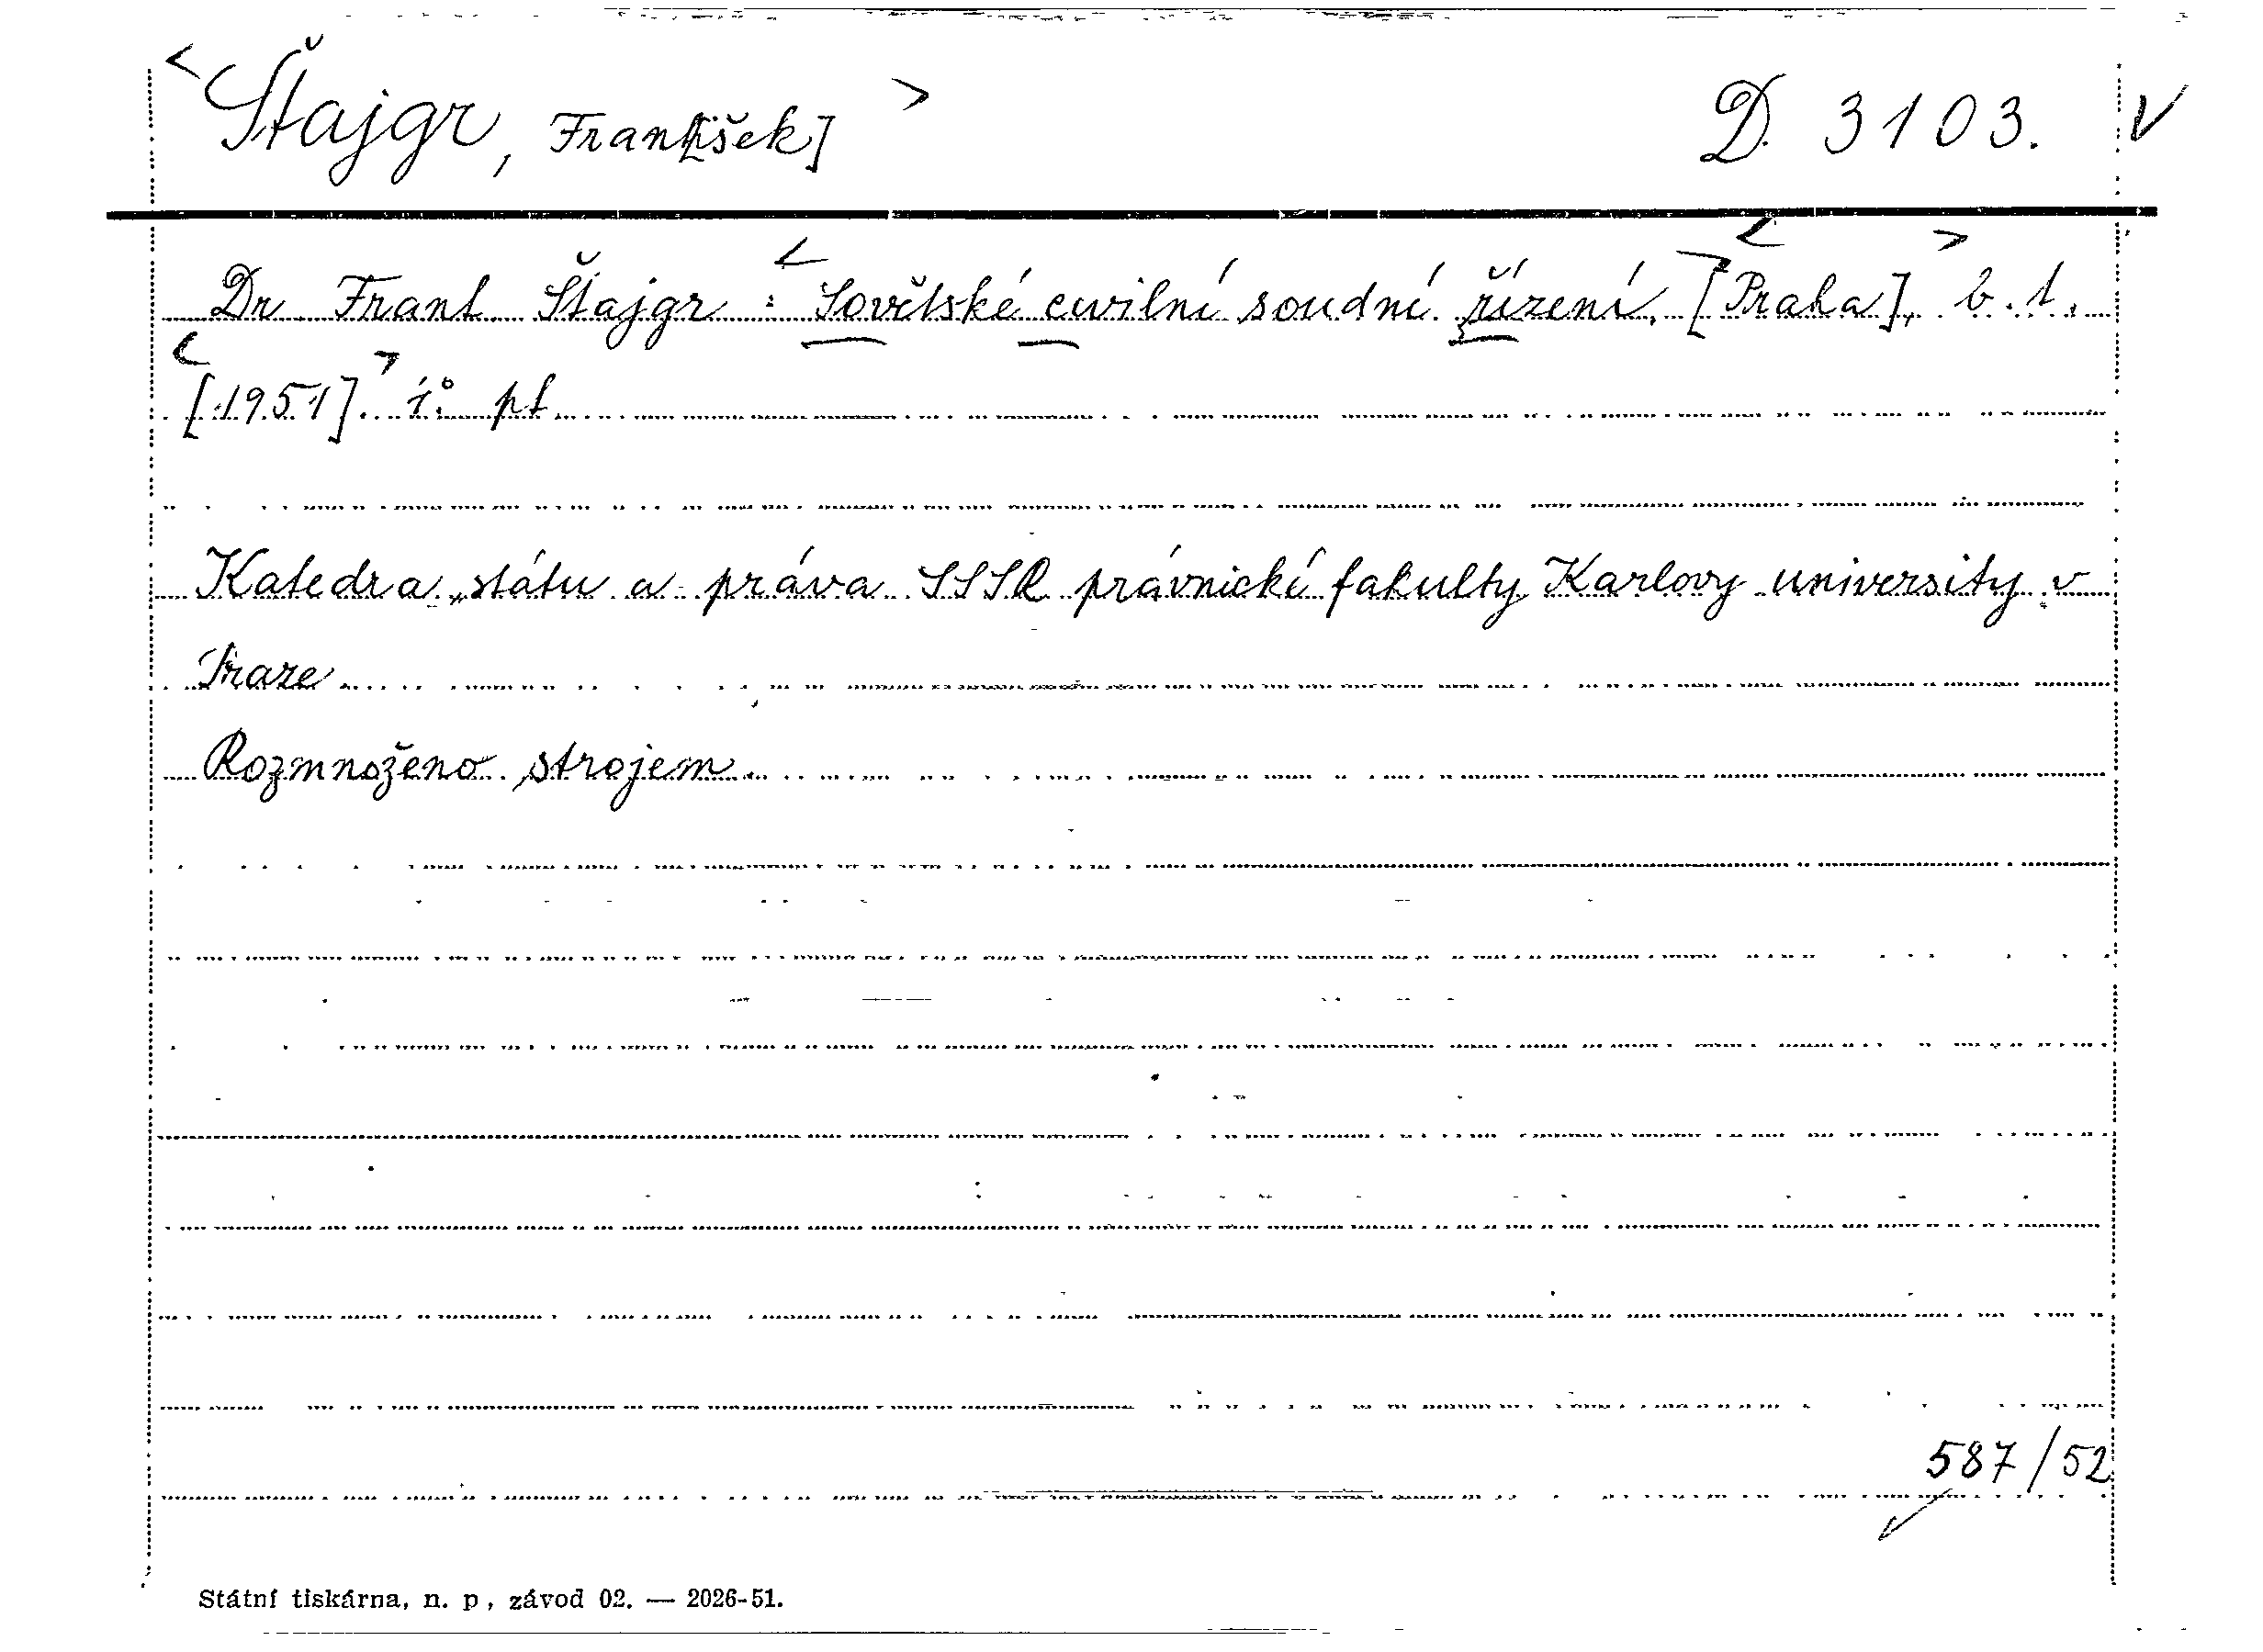 <Štajgr, Frant[išek]> D. 3103. V
Dr. Frant. Štajgr: <Sovětské civilní soudní řízení>, <[Praha]>, b. t.
<[1951]>. 4°. pt.
Katedra státu a práva SSSR právnické fakulty Karlovy university v
Praze
Rozmnoženo strojem.
587/52
Státní tiskárna, n. p., závod 02. — 2026-51.